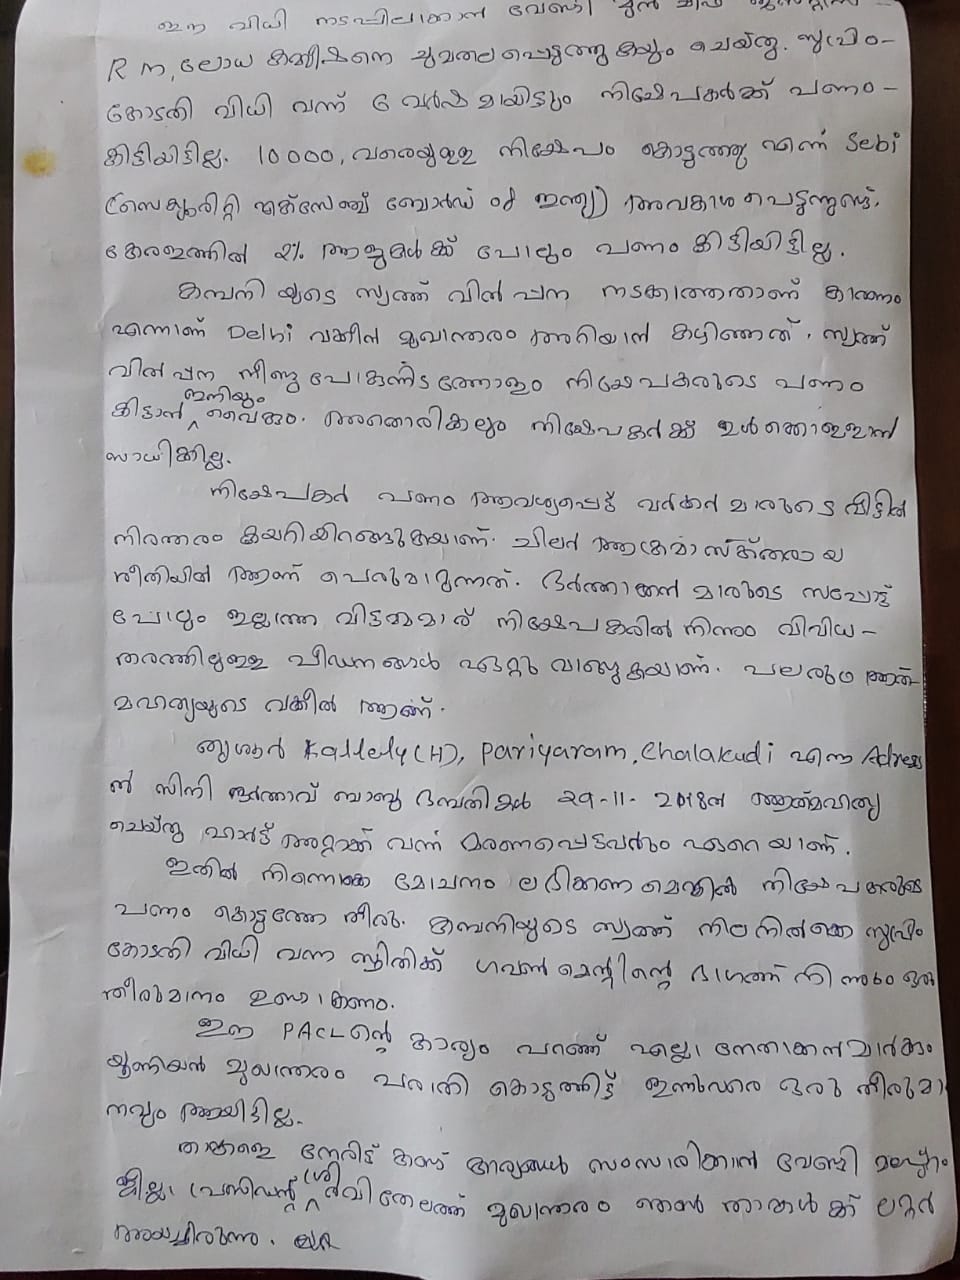 ഈ വിധി നടപ്പിലാക്കാൻ വേണ്ടി മുൻ ചീഫ് ജസ്റ്റിസ്
R M, ലോധ കമ്മീഷനെ ചുമതലപ്പെടുത്തുകയും ചെയ്തു. സുപ്രീം-
കോടതി വിധി വന്ന് 6 വർഷമായിട്ടും നിക്ഷേപകർക്ക് പണം-
കിട്ടിയിട്ടില്ല. 10000, വരെയുള്ള നിക്ഷേപം കൊടുത്തു എന്ന് Sebi
(സെക്യൂരിറ്റി എക്സേഞ്ച് ബോർഡ് of ഇന്ത്യ) അവകാശപെടുന്നുണ്ട്.
കേരളത്തിൽ 2% ആളുകൾക്ക് പോലും പണം കിട്ടിയിട്ടില്ല.
കമ്പനിയുടെ സ്വത്ത് വിൽപ്പന നടക്കാത്തതാണ് കാരണം
എന്നാണ് Delhi വക്കീൽ മുഖാന്തരം അറിയാൻ കഴിഞ്ഞത്. സ്വത്ത്
വിൽപ്പന നീണ്ടുപോകുന്നിടത്തോളം നിക്ഷേപകരുടെ പണം
കിട്ടാൻ ഇനിയും വൈകും. അതൊരിക്കലും നിക്ഷേപകർക്ക് ഉൾക്കൊള്ളാൻ
സാധിക്കില്ല.
നിക്ഷേപകർ പണം ആവശ്യപ്പെട്ട് വർക്കർമാരുടെ വീട്ടിൽ
നിരന്തരം കയറിയിറങ്ങുകയാണ്. ചിലർ അക്രമാസക്തരായ
രീതിയിൽ ആണ് പെരുമാറുന്നത്. ഭർത്താക്കൻമാരുടെ സപ്പോട്ട്
പോലും ഇല്ലാത്ത വീട്ടമ്മമാർ നിക്ഷേപകരിൽ നിന്നും വിവിധ-
തരത്തിലുള്ള പീഡനങ്ങൾ ഏറ്റു വാങ്ങുകയാണ്. പലരും ആത്-
മഹത്യയുടെ വക്കിൽ ആണ്.
തൃശൂർ Kallely(H), Pariyaram, Chalakudi എന്ന Adress
ൽ സിനി ഭർത്താവ് ബാബു ദമ്പതികൾ 29-11-2018ന് ആത്മഹത്യ
ചെയ്തു ഹാർട്ട് അറ്റാക്ക് വന്ന് മരണപ്പെട്ടവരും ഏറെയാണ്.
ഇതിൽ നിന്നൊക്കെ മോചനം ലഭിക്കണമെങ്കിൽ നിക്ഷേപകരുടെ
പണം കൊടുത്തേ തീരു. കമ്പനിയുടെ സ്വത്ത് നിലനിൽക്കെ സുപ്രീം
കോടതി വിധി വന്ന സ്ഥിതിക്ക് ഗവൺമെന്റിന്റെ ഭാഗത്ത് നിന്നും ഒരു
തീരുമാനം ഉണ്ടാകണം.
ഈ PACLന്റെ കാര്യം പറഞ്ഞ് എല്ലാ നേതാക്കൻമാർക്കും
യൂണിയൻ മുഖാന്തരം പരാതി കൊടുത്തിട്ട് ഇന്നുവരെ ഒരു തീരുമാ
നവും ആയിട്ടില്ല.
താങ്കളെ നേരിട്ട് കണ്ട് കാര്യങ്ങൾ സംസാരിക്കാൻ വേണ്ടി മലപ്പുറം
ജില്ലാ പ്രസിഡന്റ് ശ്രീ രവി തേലത്ത് മുഖാന്തരം ഞാൻ താങ്കൾക്ക് ലറ്റർ
അയച്ചിരുന്നു.